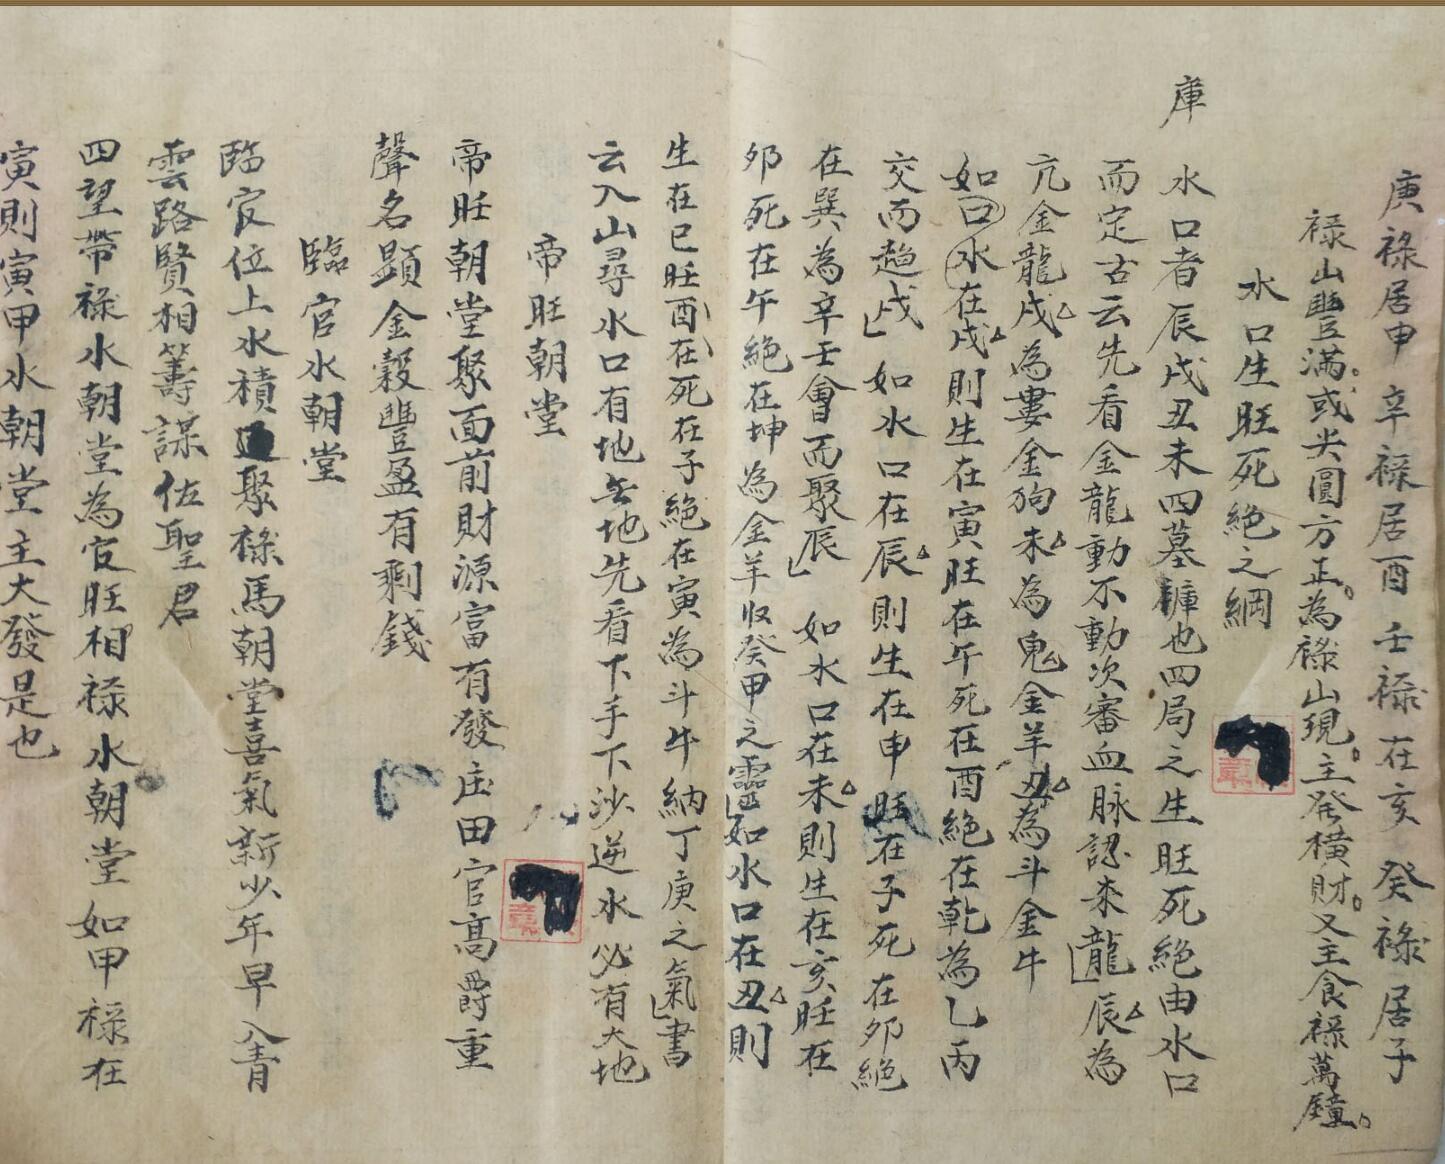 庚祿居申 辛祿居酉 壬祿在亥 癸祿居子
祿山豐滿或尖圓方正為祿山現主發橫財又主食祿萬鍾
水口生旺死絕之綱
庫
水口者辰戌丑未四墓庫也四局之生旺死絕由水口
而定古云先看金龍動不動次審血脉認來龍辰為
亢金龍戌為婁金狗未為鬼金羊丑為斗金牛
如口水在戌則生在寅旺在午死在酉絕在乾為乙丙
交而趨戌 如水口在辰則生在申旺在子死在卯絕
在巽為辛壬會而聚辰 如水口在未則生在亥旺在
卯死在午絕在坤為金羊收癸甲之靈如水口在丑則
生在巳旺酉在死在子絕在寅為斗牛納丁庚之氣書
云入山尋水口有地無地先看下手下沙逆水必有大地
帝旺朝堂
帝旺朝堂聚面前財源富有發庄田官高爵重
聲名顕金穀豐盈有剩錢
臨官水朝堂
臨官位上水積聚祿馬朝堂喜氣新少年早入青
雲路賢相籌謀佐聖君
四望帶祿水朝堂為官旺相祿水朝堂如甲祿在
寅則寅甲水朝堂主大發是也